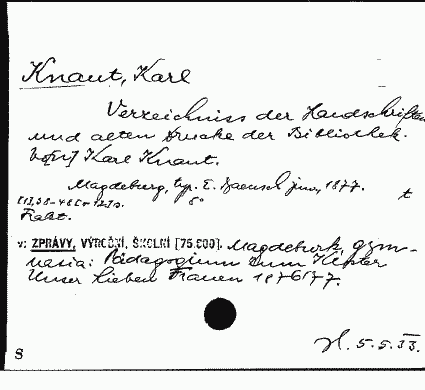 Knaut, Karl
Verzeichniss der Handschriften
und alten Drucke der Bibliothek.
Karl Knaut.
Magdeburg, typ. E. Baensch jun., 1877.
8° t
Fakt.
v: ZPRÁVY, VÝROČNÍ, ŠKOLNÍ [75.800]. Magdeburk, gym-
nasia: Pädagogium zum Kloster
Unser lieben Frauen 1876/77.
H. 5.5.33.
S